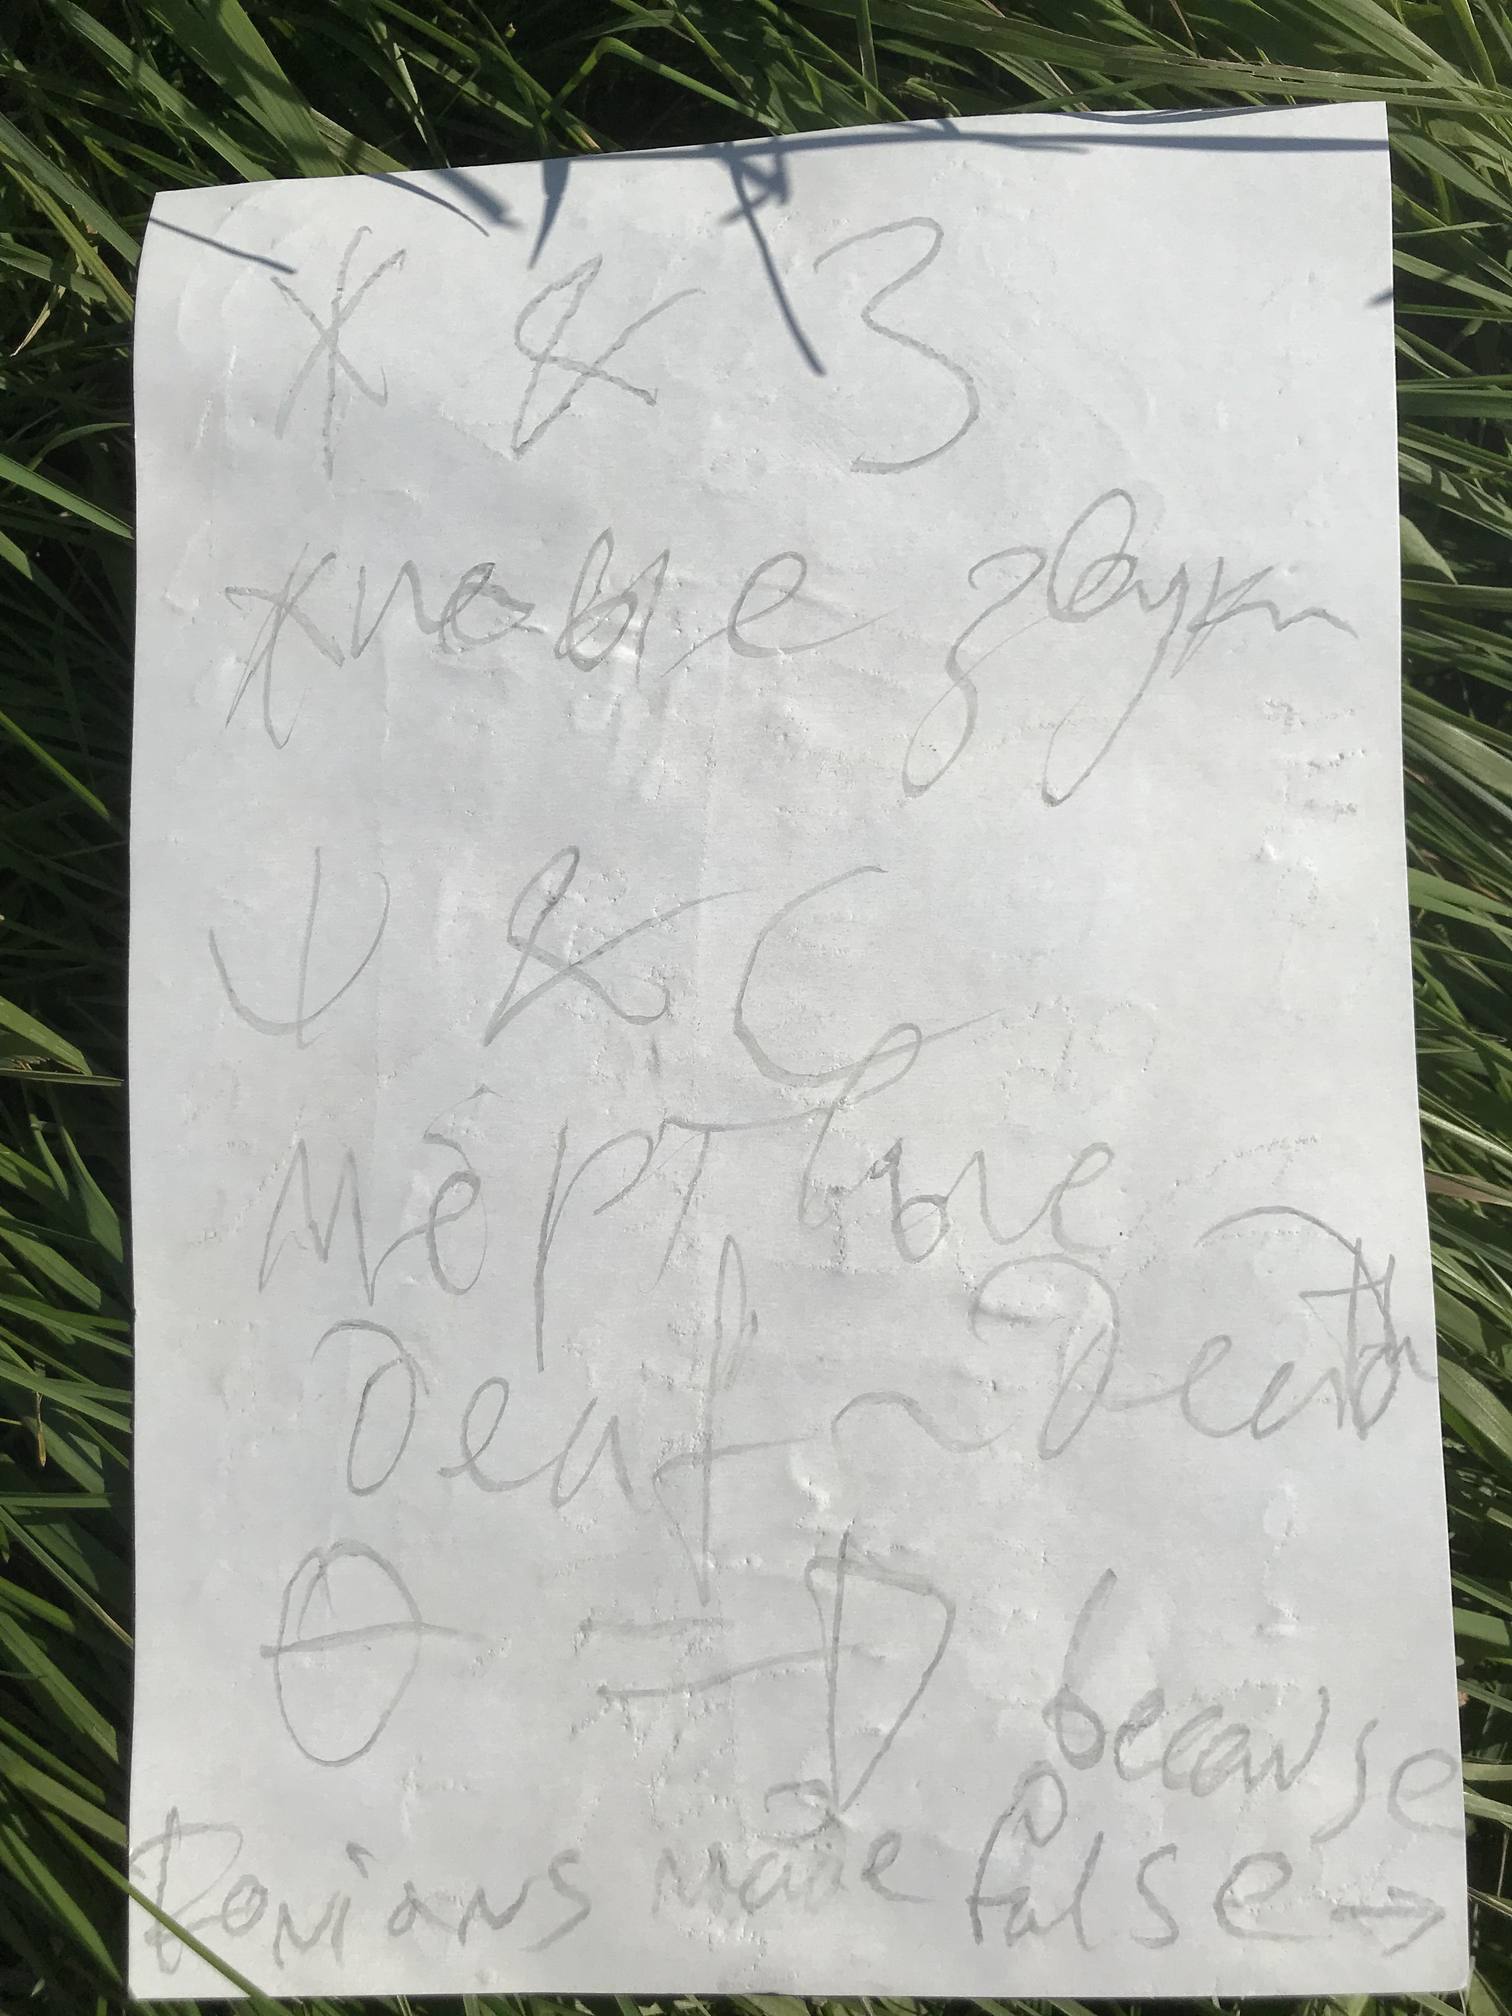 Ж & З
живые звуки
Ψ & С
мёртвые
deaf ~ Death
Θ = D because
Donians made false →